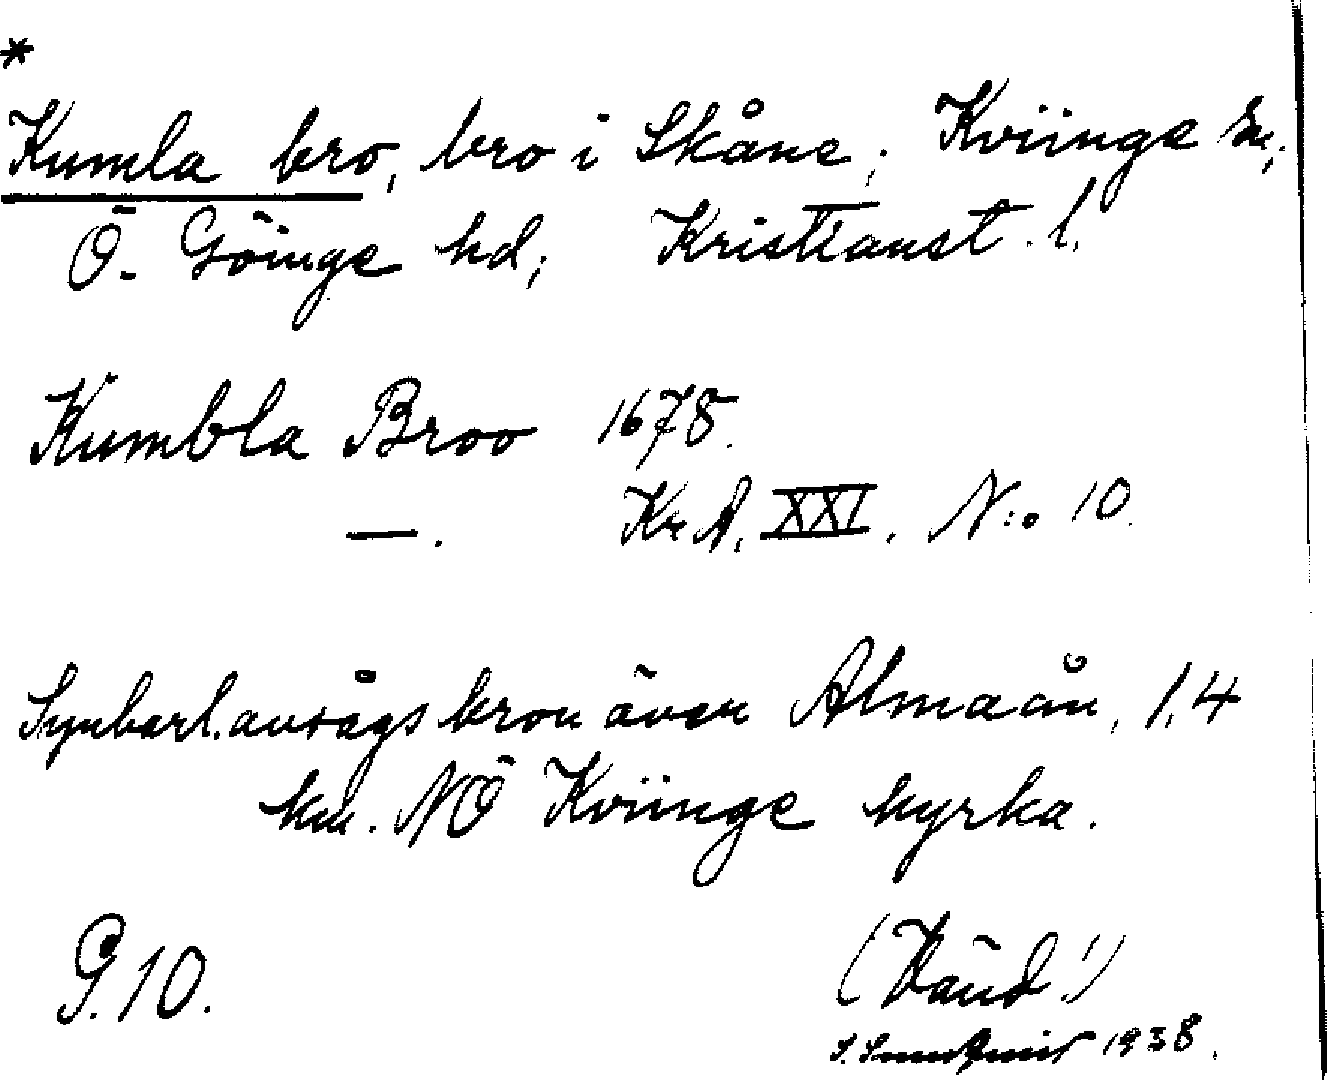 *
Kumla bro, bro i Skåne; Kviinge sn,
Ö. Göinge hd; Kristianst. l.
Kumbla Broo 1678.
—. Kr. A. XXI. N:o 10.
Synbarl. avsågs bron över Almaån, 1,4
km. NÖ Kviinge kyrka.
G. 10.
(Vänd!)
1938.